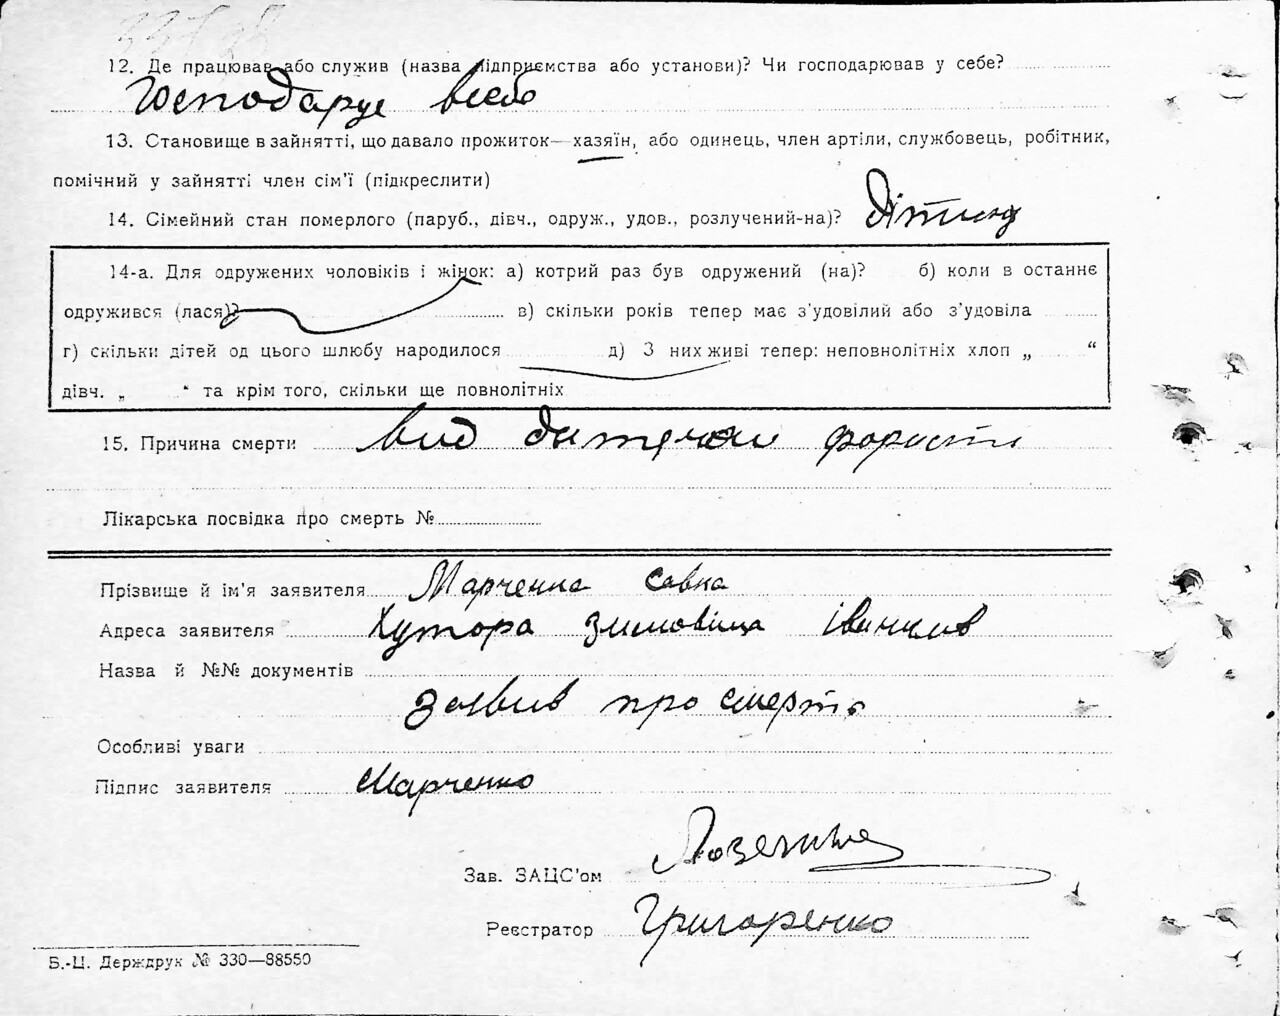 12. Де працював або служив (назва підприємства або установи)? Чи господарював у себе?
Господарує в себе
13. Становище в зайнятті, що давало прожиток—хазяїн, або одинець, член артіли, службовець, робітник,
помічний у зайнятті член сім'ї (підкреслити)
14. Сімейний стан померлого (паруб., дівч., одруж., удов., розлучений-на)? Дітина
14-а. Для одружених чоловіків і жінок: а) котрий раз був одружений (на)? б) коли в останнє
одружився (лася)? в) скільки років тепер має з'удовілий або з'удовіла
г) скільки дітей од цього шлюбу народилося д) З них живі тепер: неповнолітніх хлоп „ “
дівч. „ “ та крім того, скільки ще повнолітніх
15. Причина смерти вид дитячои
Лікарська посвідка про смерть №
Прізвище й ім'я заявителя Марченко Савка
Адреса заявителя Хутора Зимовіща
Назва й №№ документів
Заявив про смерть
Особливі уваги
Підпис заявителя Марченко
Зав. ЗАЦС'ом
Реєстратор Григоренко
Б.-Ц. Держдрук № 330—88550